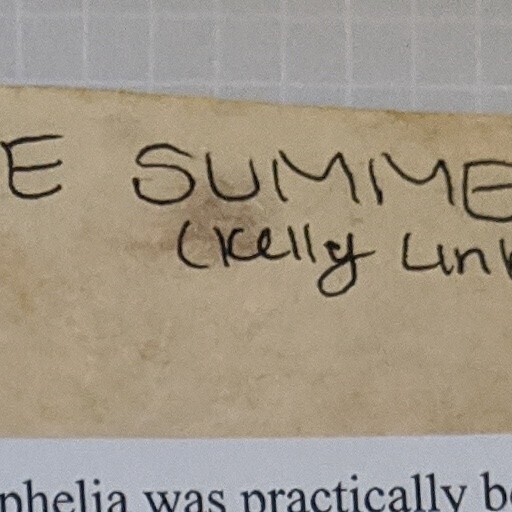 E SUMME
(Kelly Link
phelia was practically b